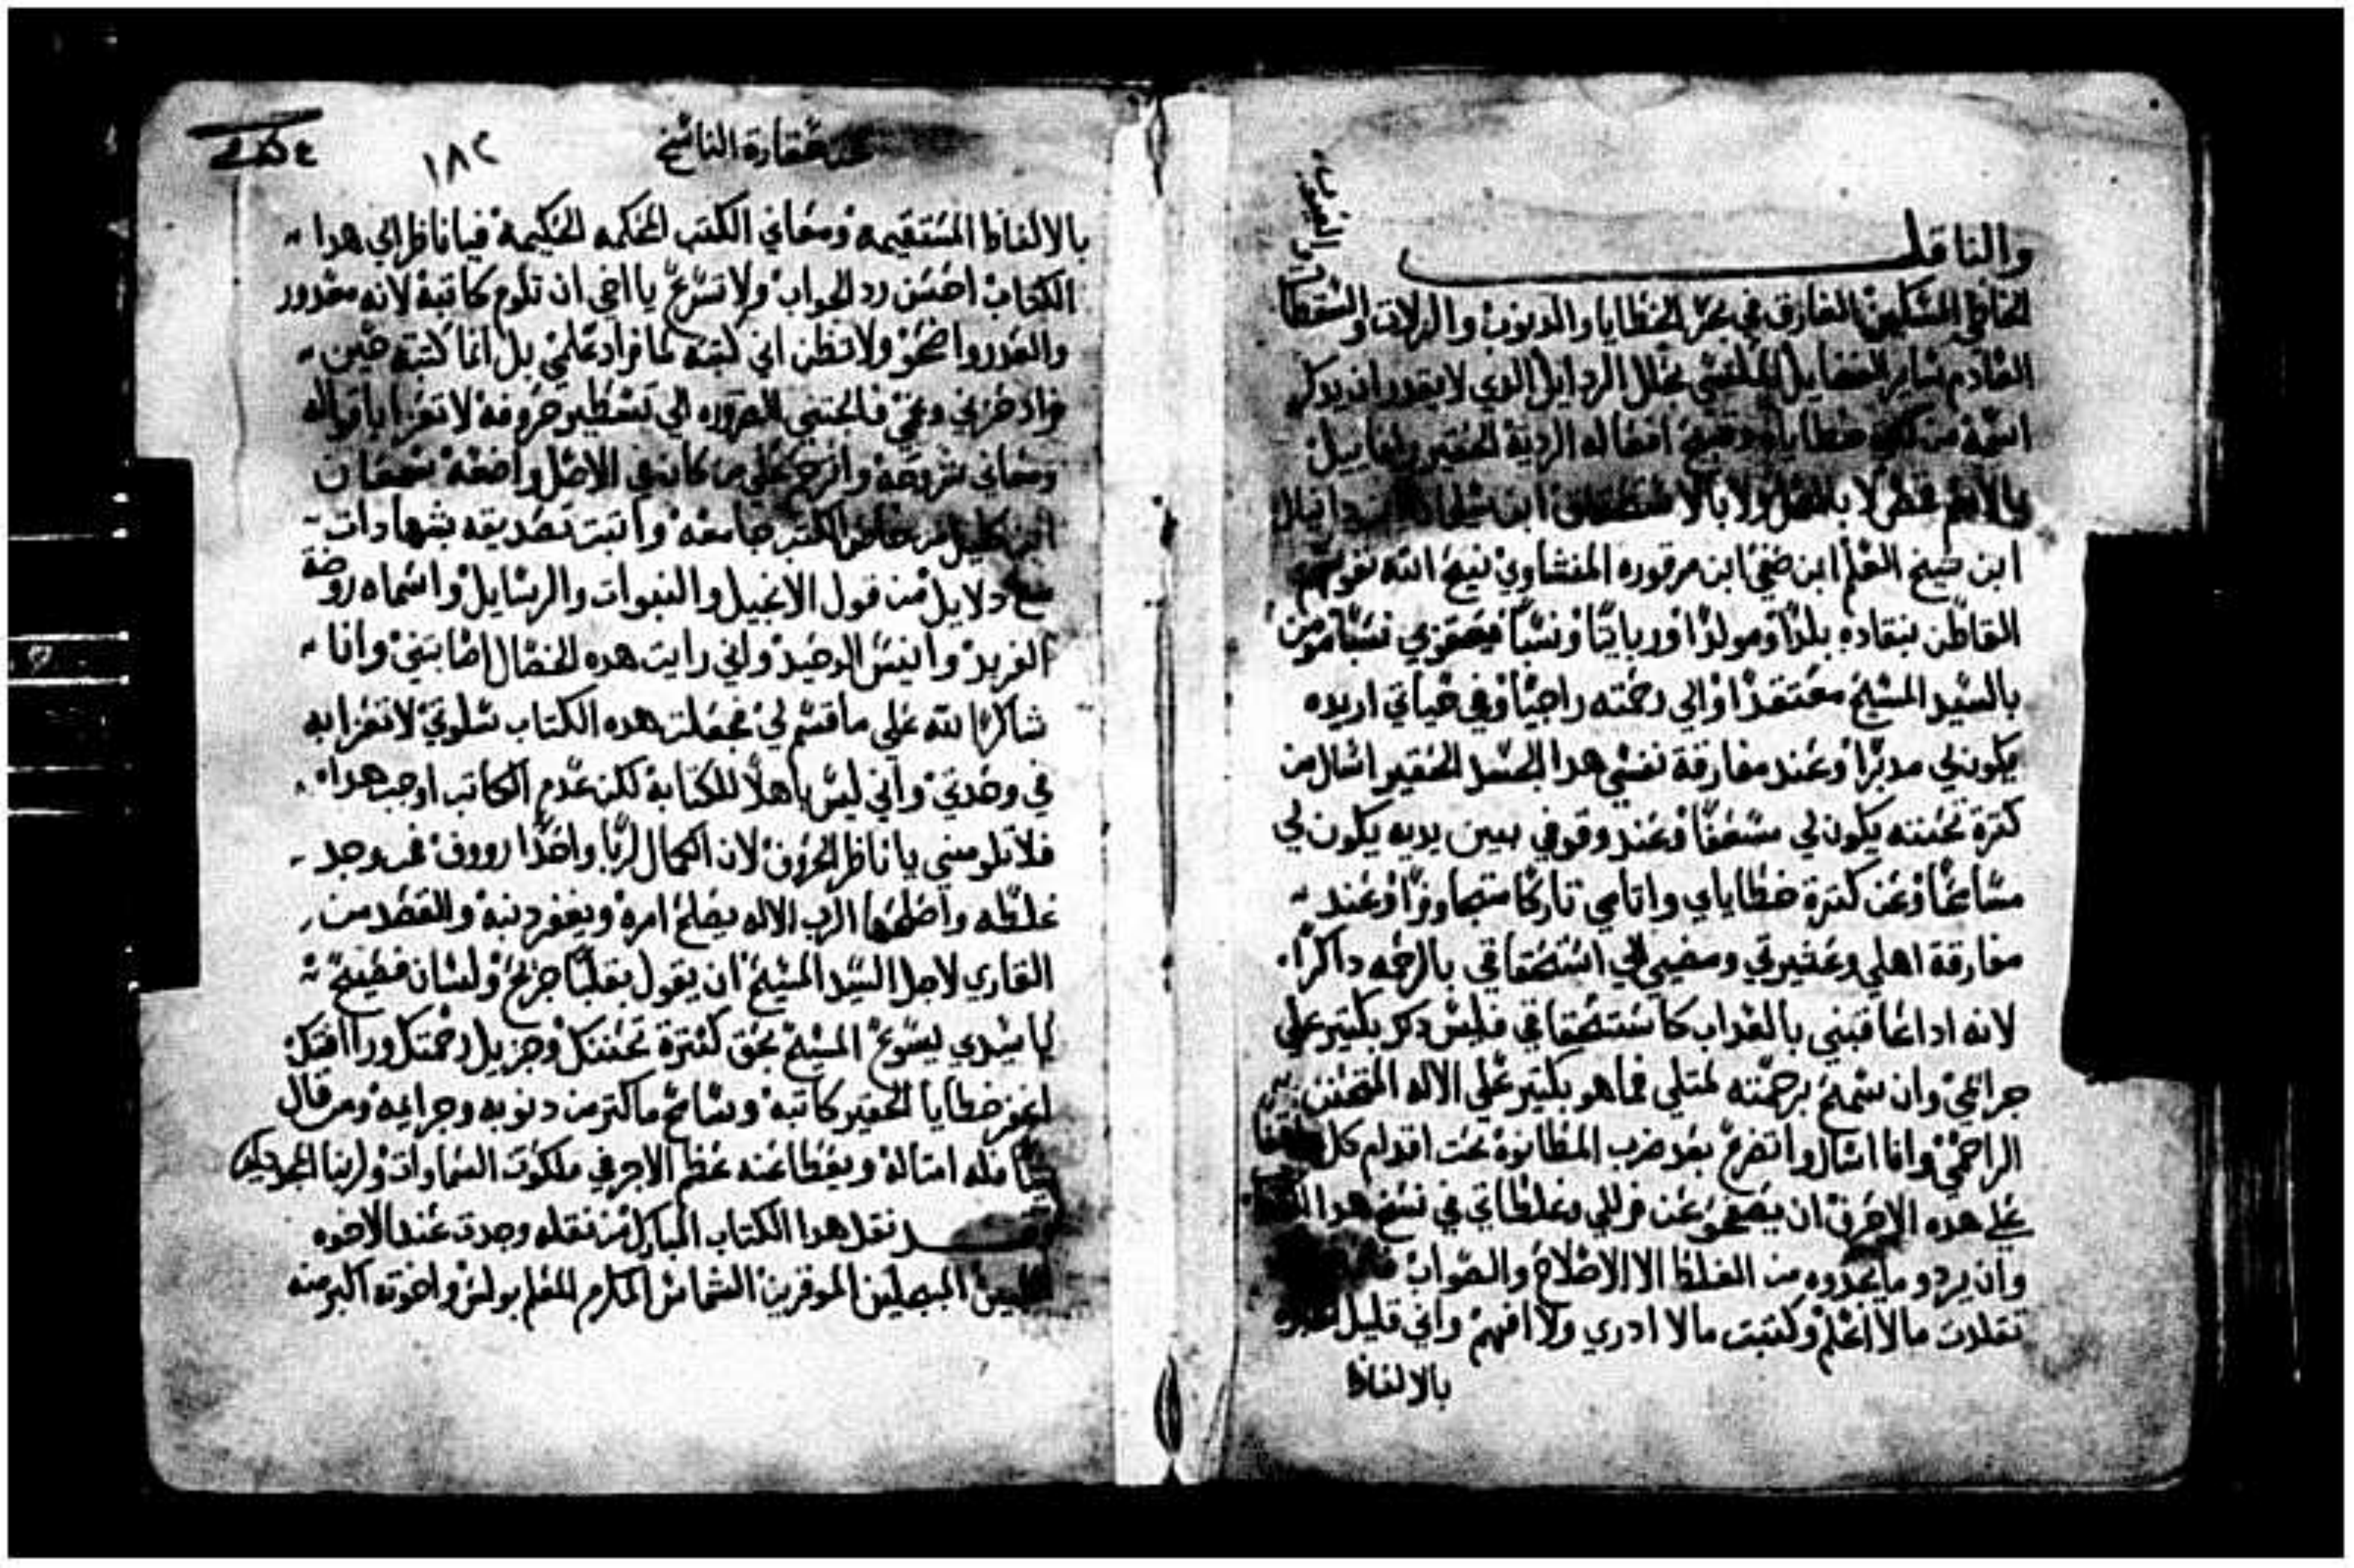 والناقل
الخاطي المسكين الغارق في بحر الخطايا والدنوب والزلات والسقطات
والعيوب
العادم ساير الفضايل الملتحي بحلل الردايل الدي لا يقدر ان يدكر
اسمه من خطاياه وقبيح افعاله الردية الحقير
بالاسم فقط لا بالفعل ولا بالاستحقاق ابن دانيال
ابن شيخ العلم ابن ضحي ابن مرقوره المنشاوي نيح الله نفوسهم
القاطن بنقاده بلدًا ومولدًا وربايتًا ونسبًا يعقوبي نسبًا مومن
بالسيد المسيح معتقدًا والي رحمته راجيًا وفي حياتي اريده
يكون لي مدبرًا وعند مفارقة نفسي هدا الجسد الحقير اسال من
كترة تحننه يكون لي مسعفًا وعند وقوفي بين يديه يكون لي
مسامحًا وعن كترة خطاياي واتامي تاركًا متجاوزًا وعند
مفارقة اهلي وعشيرتي ومضيي الي استحقاقي بالرحمه داكرًا
لانه ادا عاقبني بالعداب كاستحقاقي فليس دكر بكتير علي
جرايمي وان سمح برحمته لمتلي فما هو بكتير علي الاله المتحنن
الراحمي وانا اسال واتضرع بعد ضرب المطانوة تحت اقدام كل
علي هده الاحرف ان يصفحو عن زللي وغلطاتي في نسخ هدا
وان يردو ما يجدوه من الغلط الا الاصلاح والصواب
نقلت ما لا اعلم وكتبت ما لا ادري ولا افهم واني قليل
بالالفاظ
حقارة الناسخ
١٨٢
بالالفاظ المستقيمه ومعاني الكتب المحكمه الحكيمة فيا ناظر الي هدا
الكتاب احسن رد الجواب ولا تسرع يا اخي ان تلوم كاتبة لانه معدور
والعدر واضحو ولا تظن اني كتبته لما زاد علمي بل انما كتبته حين
زاد حزني وغمي فالجتني الضروره الي تسطير حروفة لاتعزا باقواله
ومعاني شروحه واترحم علي من كان في الاصل واضعة سمعان
ابن كليل من خاطر الكتب جامعه واتبت تصديقه بشهادات
مع دلايل من قول الانجيل والنبوات والرسايل واسماه روضة
الفريد وانيس الوحيد واني رايت هده الخصال اصابتني وانا
شاكرًا لله علي ما قسم لي فجعلت هده الكتاب سلوتي لاتعزا به
في وحدتي واني ليس باهلًا للكتابة لكن عدم الكاتب اوجب هدا
فلا تلومني يا ناظر الحروف لان الكمال لربًا واحدًا رووف فمن وجد
غلطه واصلحها الرب الاله يصلح امره ويغفر دنبه والقصد من
القاري لاجل السيد المسيح ان يقول بقلبًا جريح ولسان فصيح
يا سيدي يسوع المسيح بحق كترة تحننك وجزيل رحمتك ورافتك
اغفر خطايا الحقير كاتبه وسامح ماكتر من دنوبه وجرايمه ومن قال
شيًا فله امتاله ويعطا عنه عظم الاجر في ملكوت السماوات ولربنا المجد دايما
نقل هدا الكتاب المبارك من نقله وجدت عند الاخوه
المبجلين الموقرين الشماس المكرم المعلم بولس واخوته اكبر منه